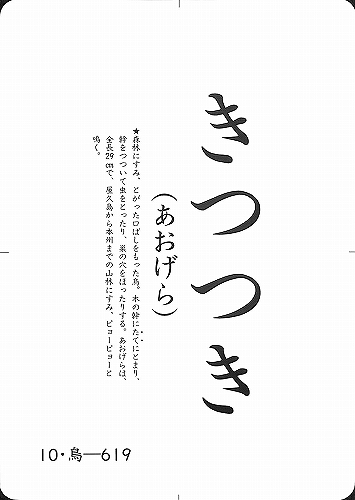 きつつき
（あおげら）
★森林にすみ、とがった口ばしをもった鳥。木の幹にたてにとまり、
幹をつついて虫をとったり、巣の穴をほったりする。あおげらは、
全長29㎝で、屋久島から本州までの山林にすみ、ピョーピョーと
鳴く。
10・鳥―619